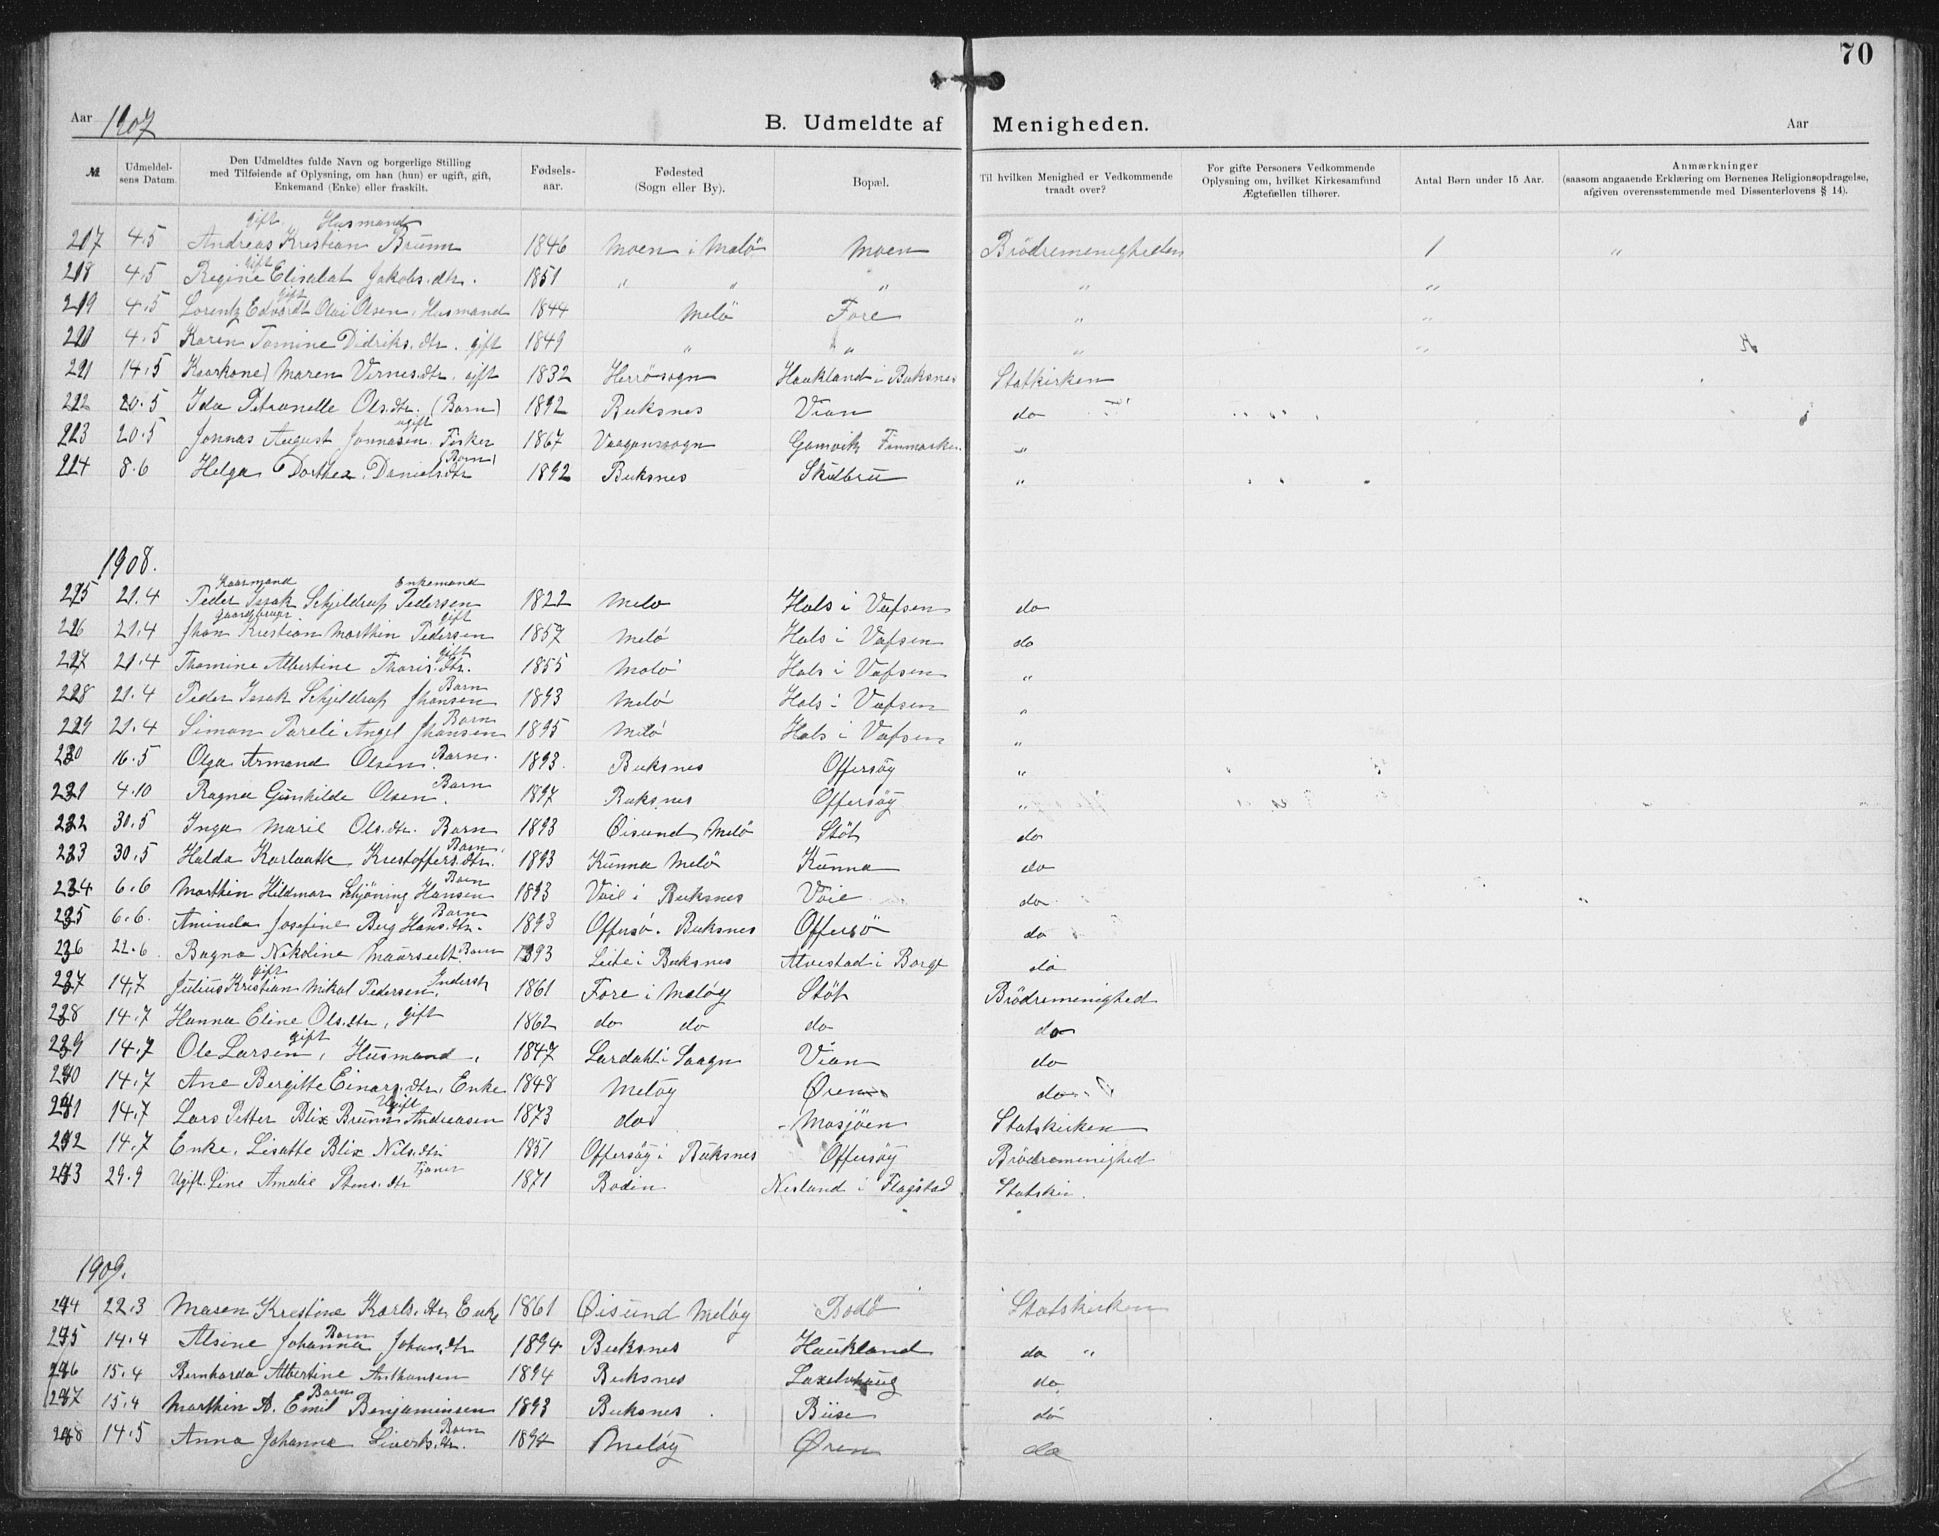 70
Aar 1907 B. Udmeldte af Menigheden. Aar
№ Udmeldelsens Datum. Den Udmeldtes fulde Navn og borgerlige Stilling med Tilføiende af Oplysning, om han (hun) er ugift, gift, Enkemand (Enke) eller fraskilt. Fødselsaar. Fødested (Sogn eller By). Bopæl. Til hvilken Menighed er Vedkommende traadt over? For gifte Personers Vedkommende Oplysning om, hvilket Kirkesamfund Ægtefællen tilhører. Antal Børn under 15 Aar. Anmærkninger (saasom angaaende Erklæring om Børnenes Religionsopdragelse, afgiven overensstemmende med Dissenterlovens § 14).
gift Husmand
217 4.5 Andreas Krestian Brunn 1846 Moen i Melö Moen Brödremenigheden 1 "
gift
218 4.5 Regine Elisabat Jakobs.dtr. 1851 " " " " "
gift
219 4.5 Lorentz Edvardt Olai Olsen, Husmand 1844 Melö Fore " "
220 4.5 Karen Tomine Didriks.dtr. gift 1849 " " " "
221 14.5 Kaarkone) Maren Vernes.dtr. gift 1832 Herrösogn Haukland i Buksnes Statkirken
222 20.5 Ida Petronelle Ols.dtr. (Barn) 1892 Buksnes Vian do
ugift
223 20.5 Jonnas August Jonnasen Fisker 1867 Vaagenssogn Gamvik Finmarken "
(Barn)
224 8.6 Helga Dorthea Daniels.dtr 1892 Buksnes Skulbru "
1908.
Kaarmand Enkemand
225 21.4 Peder Isak Schjeldrup Pedersen 1822 Melö Hals i Vefsen do
Gaardbruger gift
226 21.4 Jhan Krestian Marthin Pedersen 1857 Melö Hals i Vefsen do
gift
227 21.4 Thomine Albertine Thoris.dtr. 1855 Melö Hals i Vefsen "
Barn
228 21.4 Peder Isak Schjeldrup Jhansen 1893 Melö Hals i Vefsen "
Barn
229 21.4 Simon Pareli Angel Jhansen 1895 Melö Hals i Vefsen "
230 16.5 Olga Armand Olsen. Barn. 1893. Buksnes Offersöy "
231 4.10 Ragna Gunhilde Olsen. Barn 1897 Buksnes Offersöy "
232 30.5 Inga Marie Ols.dtr. Barn 1893 Öisund Melö Stöt do
Barn.
233 30.5 Halda Karlaatte Krestoffers.dtr. 1893 Kunna Melö Kunna do
Barn
234 6.6 Marthin Hildmar Schjöning Hansen 1893 Voie i Buksnes Voie do
Barn
235 6.6. Aminda Josefine Berg Hans.dtr. 1893 Offersö. Buksnes Offersö do
236 22.6 Ragna Nikoline Maarsedt. Barn 1893 Leite i Buksnes Alvestad i Borge do
gift
237 14,7 Julius Kristian Mikal Pedersen, Inderst 1861 Fore i Melöy Stöt Brödremenighed
238 14.7 Hanna Eline Ols.dtr, gift 1862 do do do do
gift
239 14.7 Ole Larsen, Husmand, 1847 Lardahl i Saagn Vian do
240 14.7 Ane Bergitte Einars.dtr, Enke 1848 Melöy Øren do
Ugift
241 14.7 Lars Petter Blix Brunn Andreasen 1873 do Mosjöen Statskirken
242 14.7 Enke. Lisatte Blix Nils.dtr 1851 Offersöy i Buksnes Offersöy Brödremenighed
243 29.9 Ugift. Line Amalie Stens.dtr Tjener 1871 Bodin Nesland i Flagstad Statskir.
1909.
244 22.3 Maren Krestine Karls.dtr Enke 1861 Öisund Melöy Bodö Statskirken
Barn
245 14.4 Alsine Johanna Johans.dtr 1894 Buksnes Haukland do "
246 15.4 Bernharda Albertine Anthansen 1894 Buksnes do
Barn
247 15.4 Marthin A. Emil Benjaminsen 1893 Buksnes. do
Barn
248 14.5 Anna Johanna Siverts.dtr. 1894 Melöy Øren do